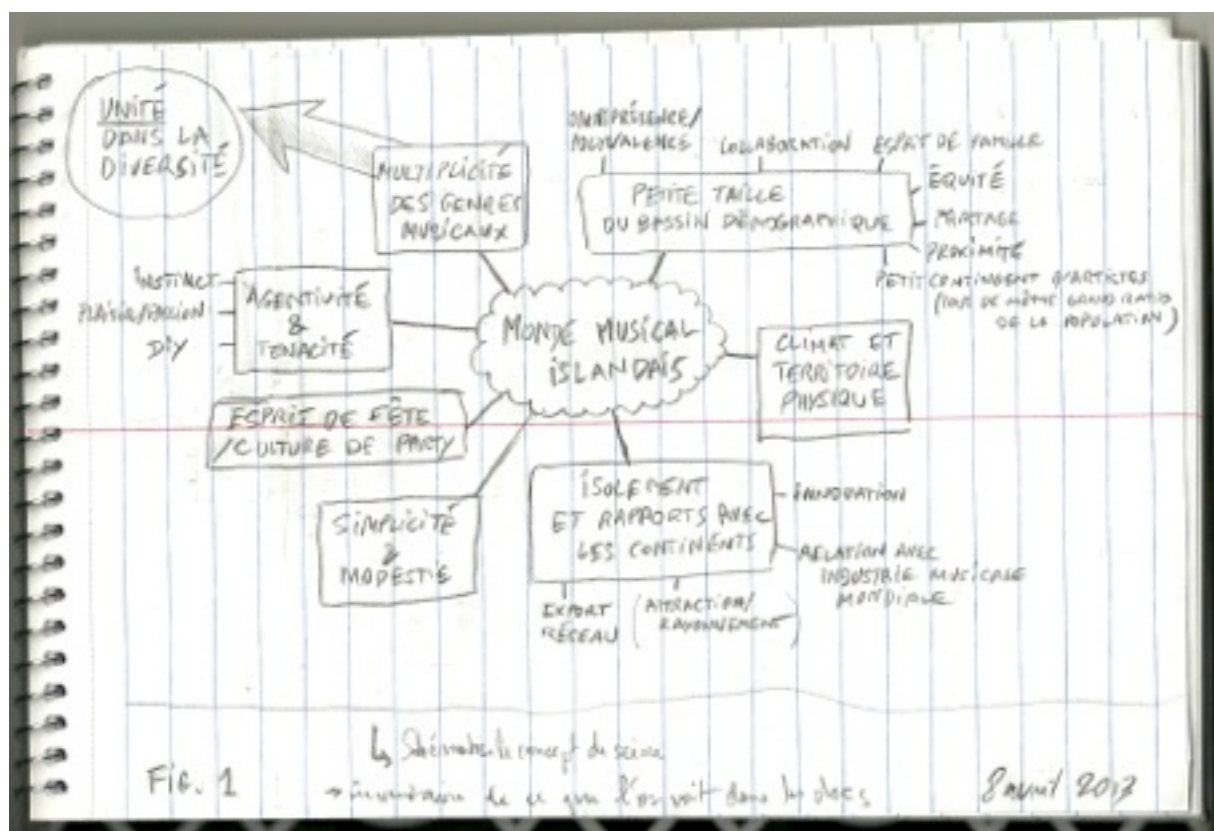 UNITÉ
DANS LA
DIVERSITÉ
MULTIPLICITÉ
DES GENRES
MUSICAUX
OMNIPRÉSENCE/
POLYVALENCE
COLLABORATION
ESPRIT DE FAMILLE
ÉQUITÉ
PARTAGE
PROXIMITÉ
PETITE TAILLE
DU BASSIN DÉMOGRAPHIQUE
PETIT CONTINGENT D'ARTISTES
(TOUT DE MÊME GRAND RATIO
DE LA POPULATION)
INSTINCT
PLAISIR/PASSION
DIY
AGENTIVITÉ
&
TENACITÉ
MONDE MUSICAL
ISLANDAIS
CLIMAT ET
TERRITOIRE
PHYSIQUE
ESPRIT DE FÊTE
/CULTURE DE PARTY
SIMPLICITÉ
&
MODESTIE
ISOLEMENT
ET RAPPORTS AVEC
LES CONTINENTS
INNOVATION
RELATION AVEC
INDUSTRIE MUSICALE
MONDIALE
EXPORT
RÉSEAU
(ATTRACTION/
RAYONNEMENT)
↳ Schématiser le concept de scène
→ inventaire de ce que l'on voit dans les docs
Fig. 1
8 avril 2013